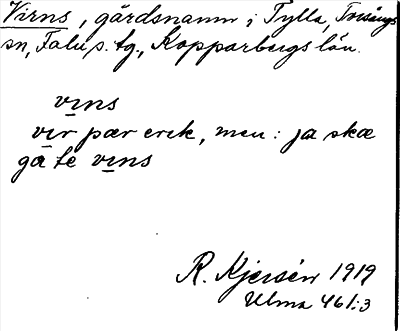 Virns, gårdsnamn i Tylla, Torsångs
sn, Falu s. tg., Kopparbergs län.
vins
vir pær erik, men: ja skæ
gå te vins
R. Kjersén 1919
Ulma 461:3